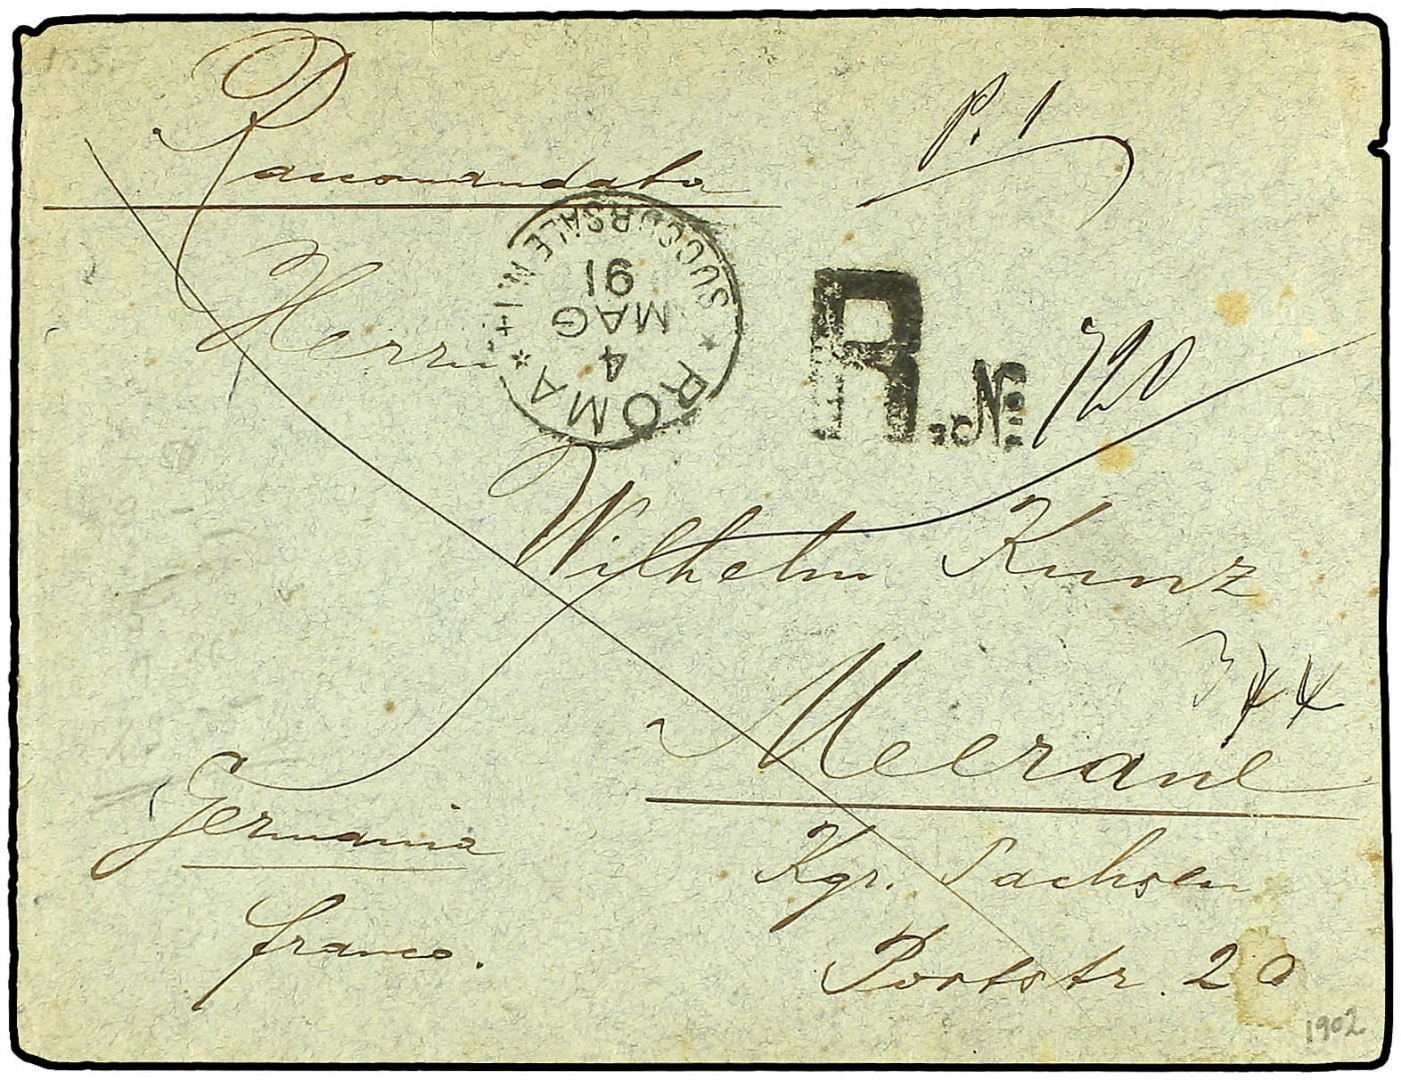 155.
Raccomandata
P. 1
Herrn
ROMA
SUCCURSALE N. 1
4
MAG
91
R. No 720
Wilhelm Kunz
344
Meerane
Kgr. Sachsen
Poststr. 20
Germania
franco.
1902